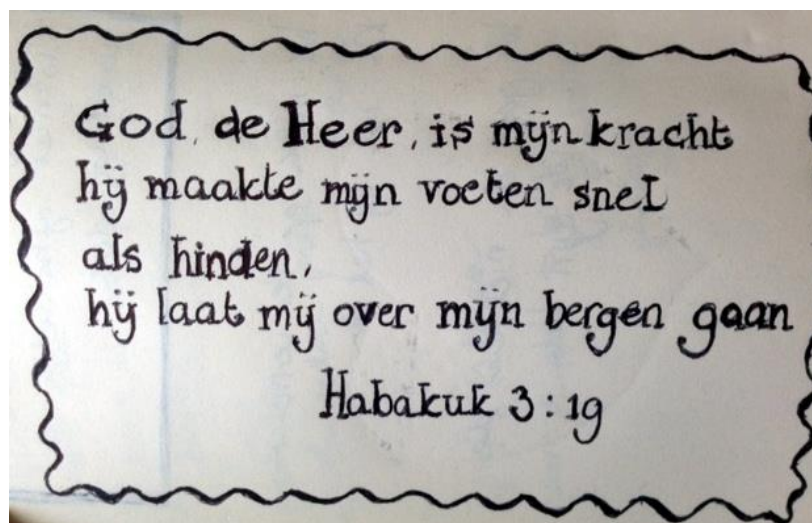 God, de Heer, is mijn kracht
hij maakte mijn voeten snel
als hinden,
hij laat mij over mijn bergen gaan
Habakuk 3:19